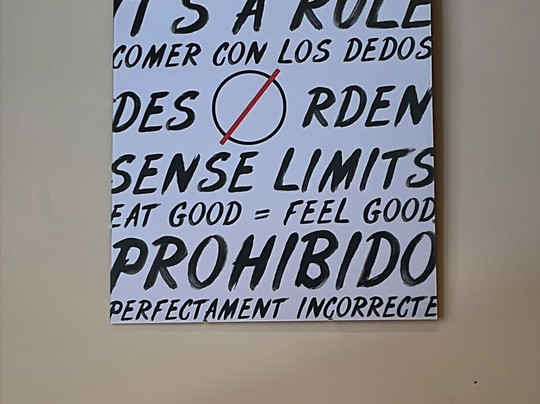 IT'S A RULE
COMER CON LOS DEDOS
DESORDEN
SENSE LIMITS
EAT GOOD = FEEL GOOD
PROHIBIDO
PERFECTAMENT INCORRECTE